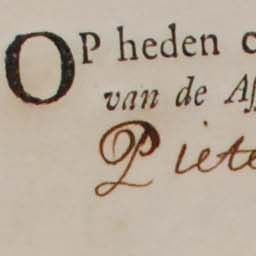 OP heden
van de
Piete